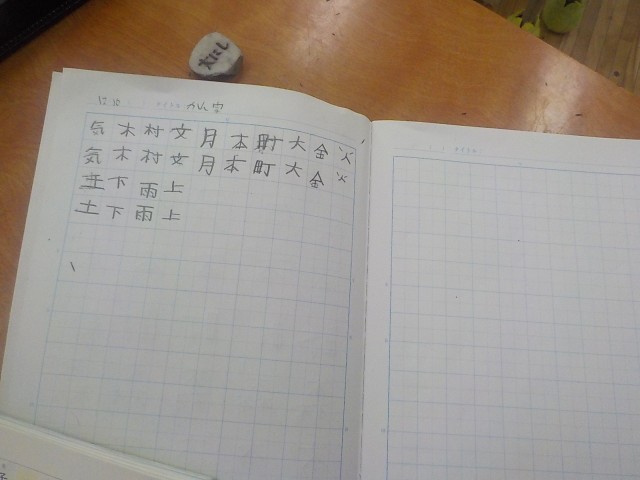 12 10 かん字
気木村文月本町大金火
気木村文月本町大金火
土下雨上
土下雨上